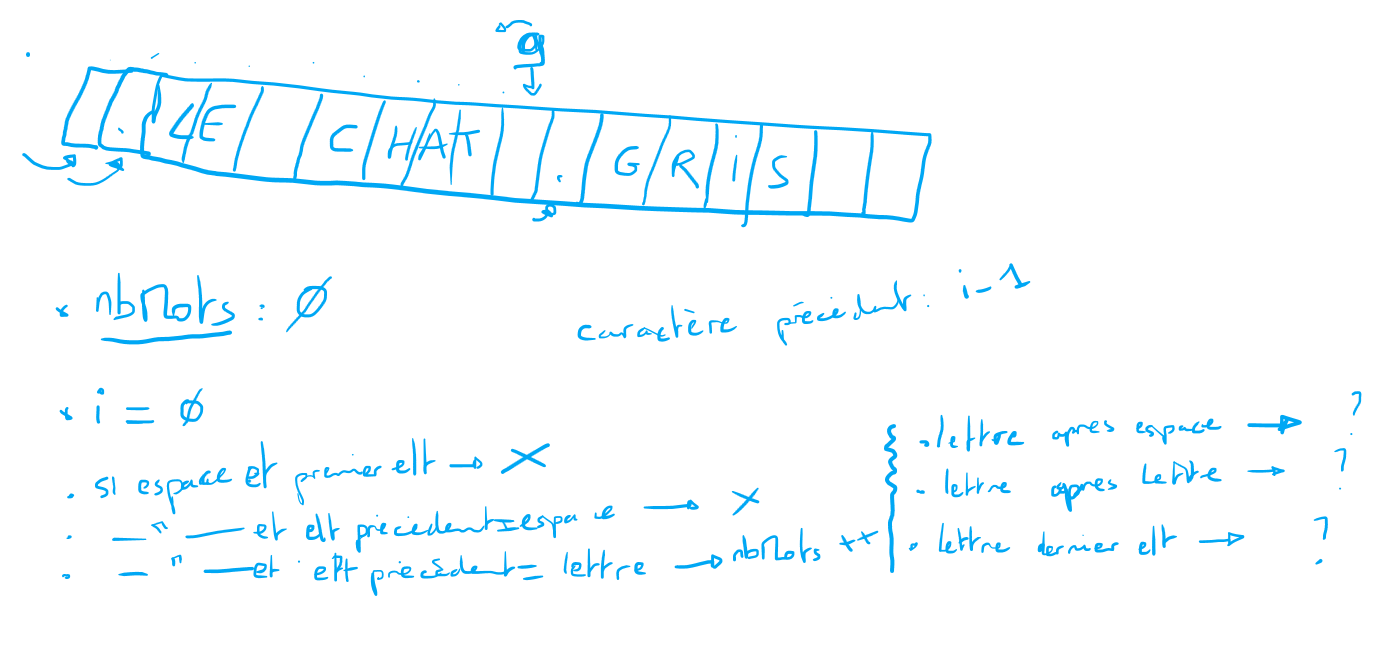 g
. L E C H A T . G R i S
* nbMots : Ø
caractère précédent : i-1
* i = Ø
. si espace et premier elt → X
. — " — et elt précédent = espace → X
. — " — et elt précédent = lettre → nbMots ++
. lettre après espace → ?
. lettre après lettre → ?
. lettre dernier elt → ?